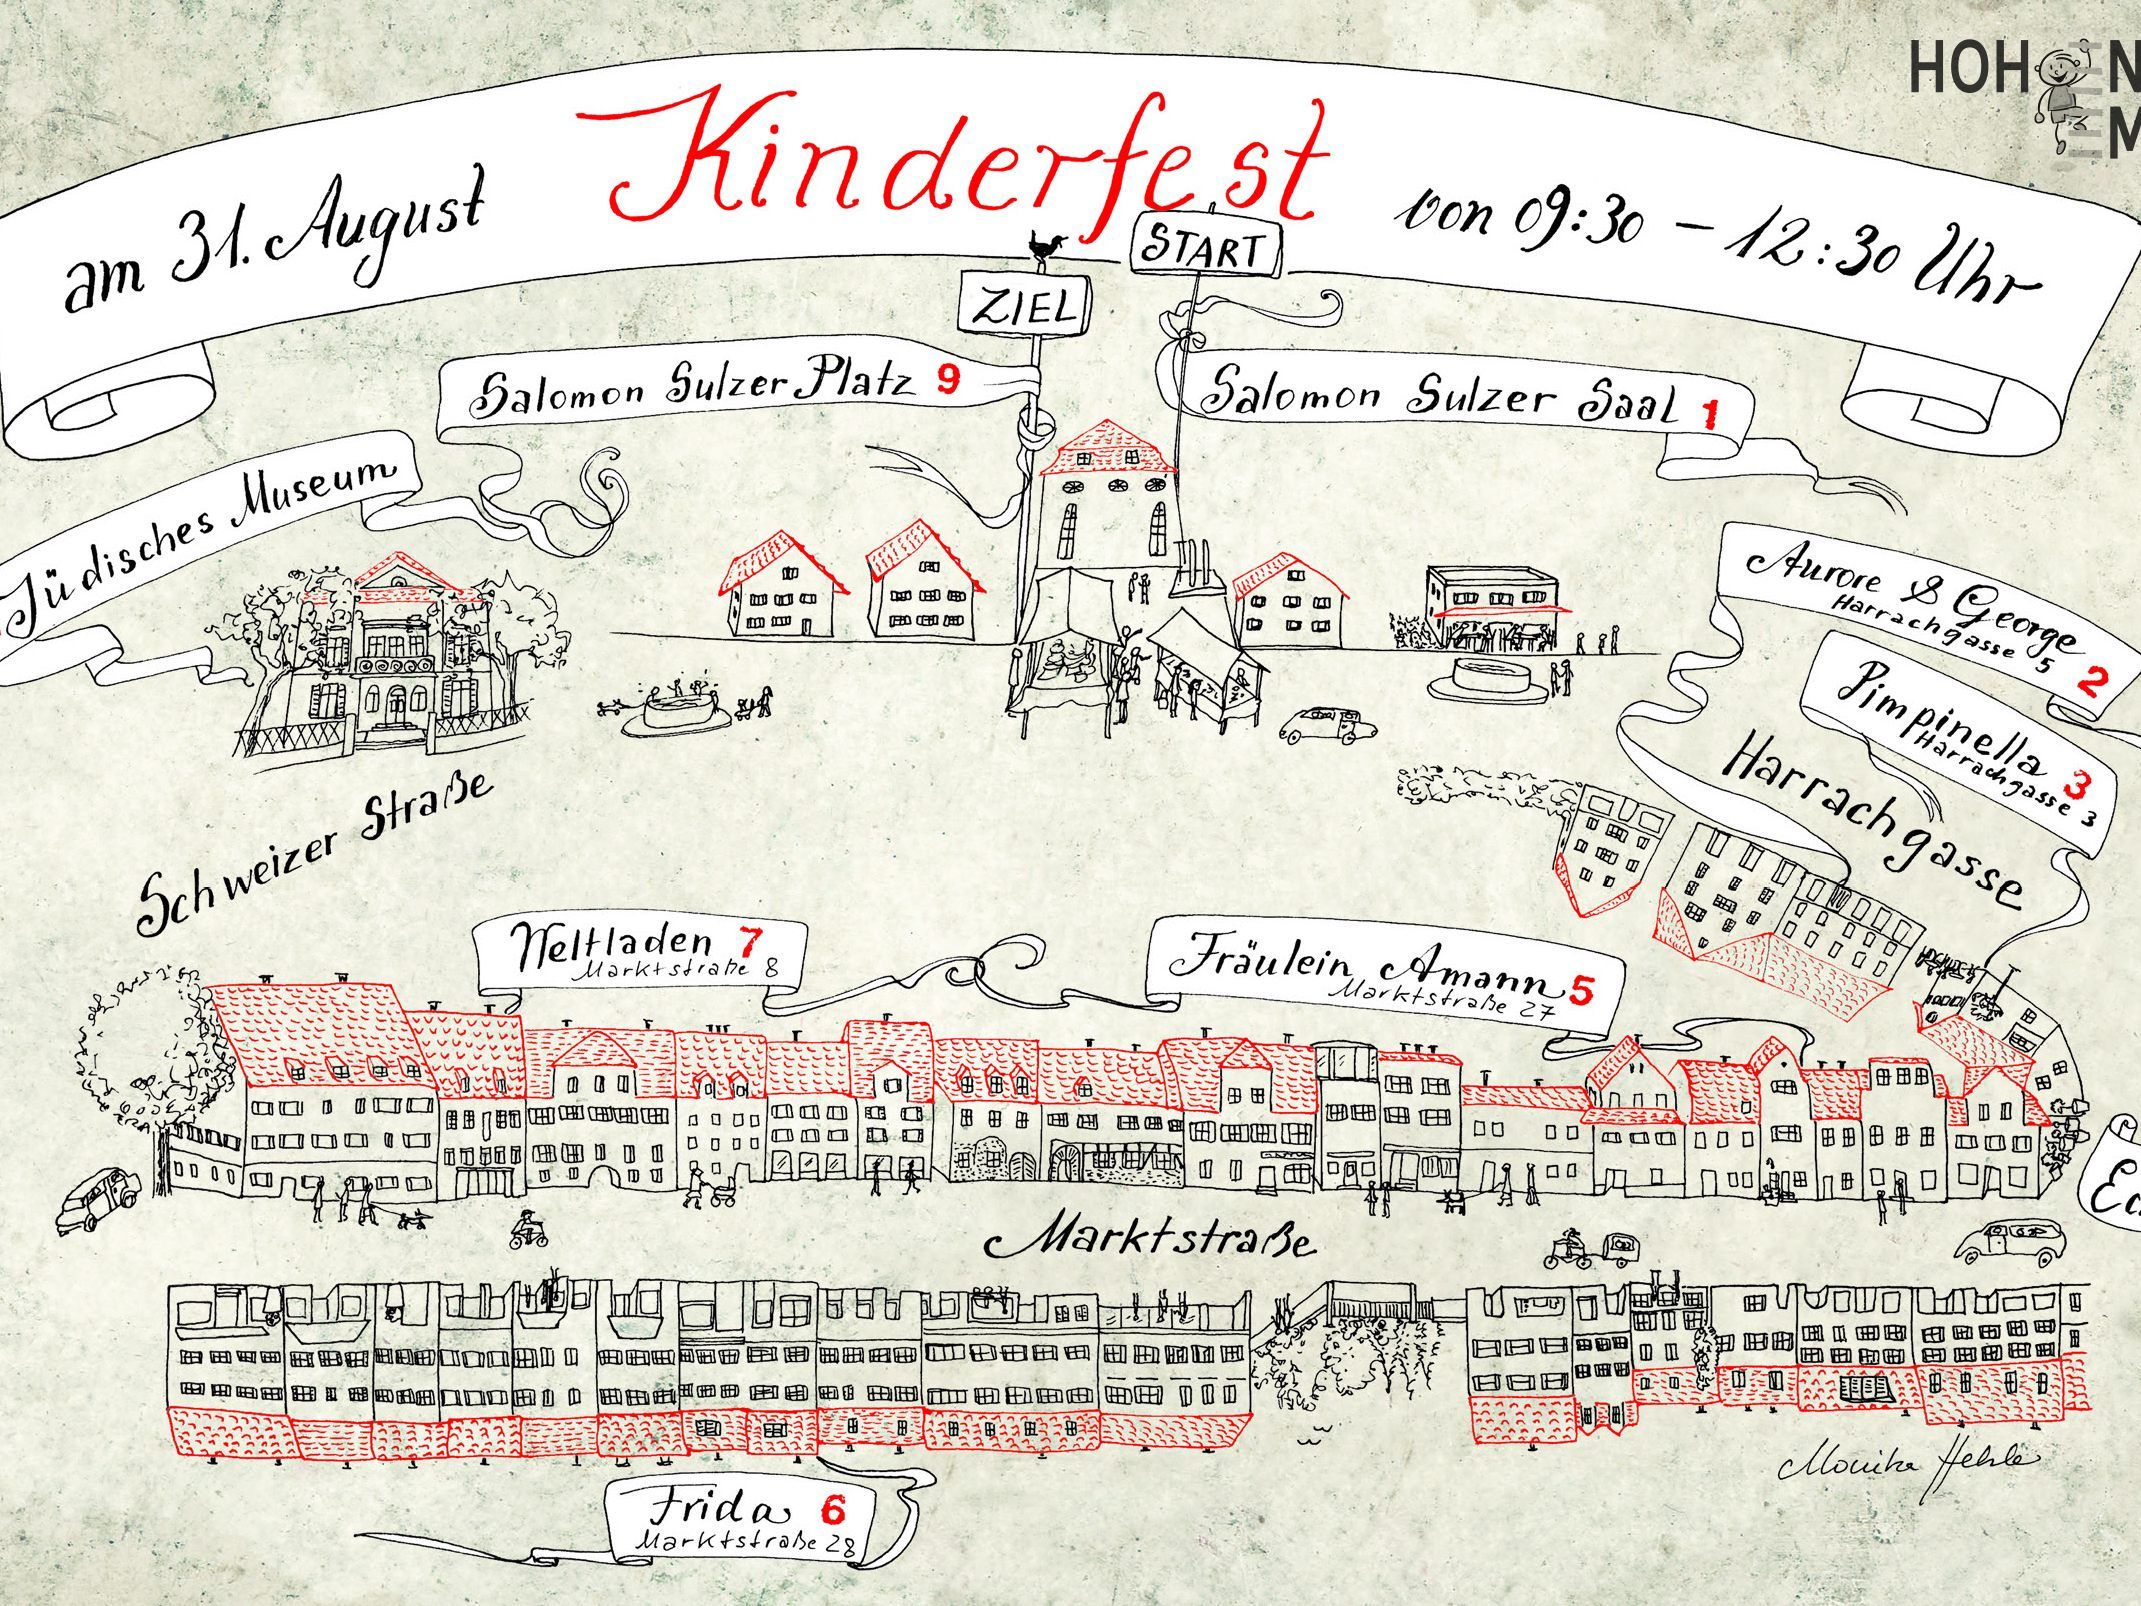 HOH N
M
Kinderfest
am 31. August
von 09:30 – 12:30 Uhr
START
ZIEL
Salomon Sulzer Platz 9
Salomon Sulzer Saal 1
Jüdisches Museum
Aurore & George
Harrachgasse 5 2
Pimpinella
Harrachgasse 3 3
Harrachgasse
Schweizer Straße
Weltladen 7
Marktstraße 8
Fräulein Amann 5
Marktstraße 27
Marktstraße
Monika Hehle
Frida 6
Marktstraße 28